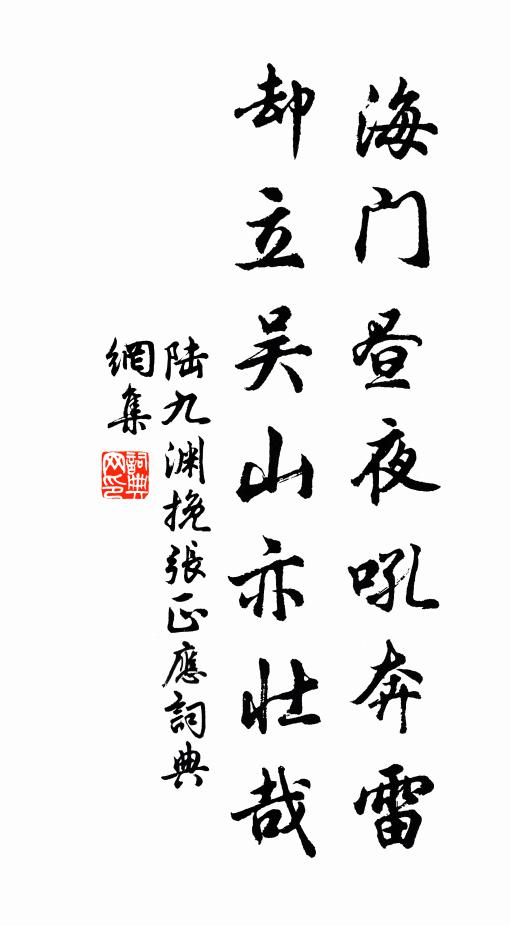 海门昼夜吼奔雷
却立吴山亦壮哉
陆九渊挽张正應詞典
網集
詞典网印